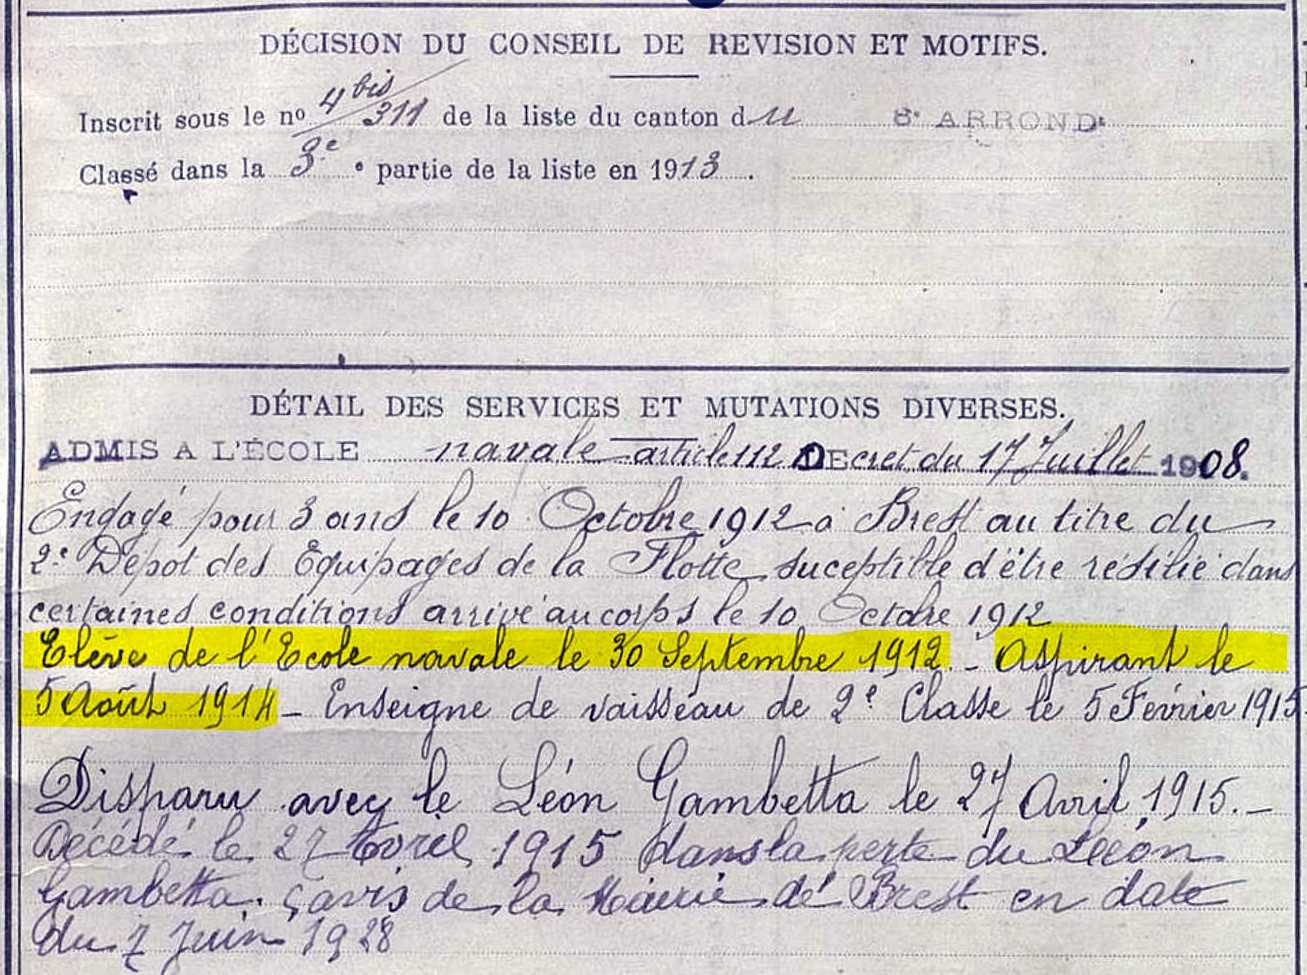 DÉCISION DU CONSEIL DE REVISION ET MOTIFS.
Inscrit sous le no 4 bis / 311 de la liste du canton du 8e ARRONDt
Classé dans la 3e e partie de la liste en 1913.
DÉTAIL DES SERVICES ET MUTATIONS DIVERSES.
ADMIS A L'ÉCOLE navale article 112 DEcret du 17 Juillet 1908.
Engagé pour 3 ans le 10 Octobre 1912 à Brest au titre du
2e Dépot des Equipages de la Flotte suceptible d'être résilié dans
certaines conditions arrivé au corps le 10 Octobre 1912
Elève de l'Ecole navale le 30 Septembre 1912. - Aspirant le
5 Août 1914 - Enseigne de vaisseau de 2e Classe le 5 Février 1915
Disparu avec le Léon Gambetta le 27 Avril 1915. -
Décédé le 27 Avril 1915 dans la perte du Léon
Gambetta. avis de la Mairie de Brest en date
du 7 Juin 1928